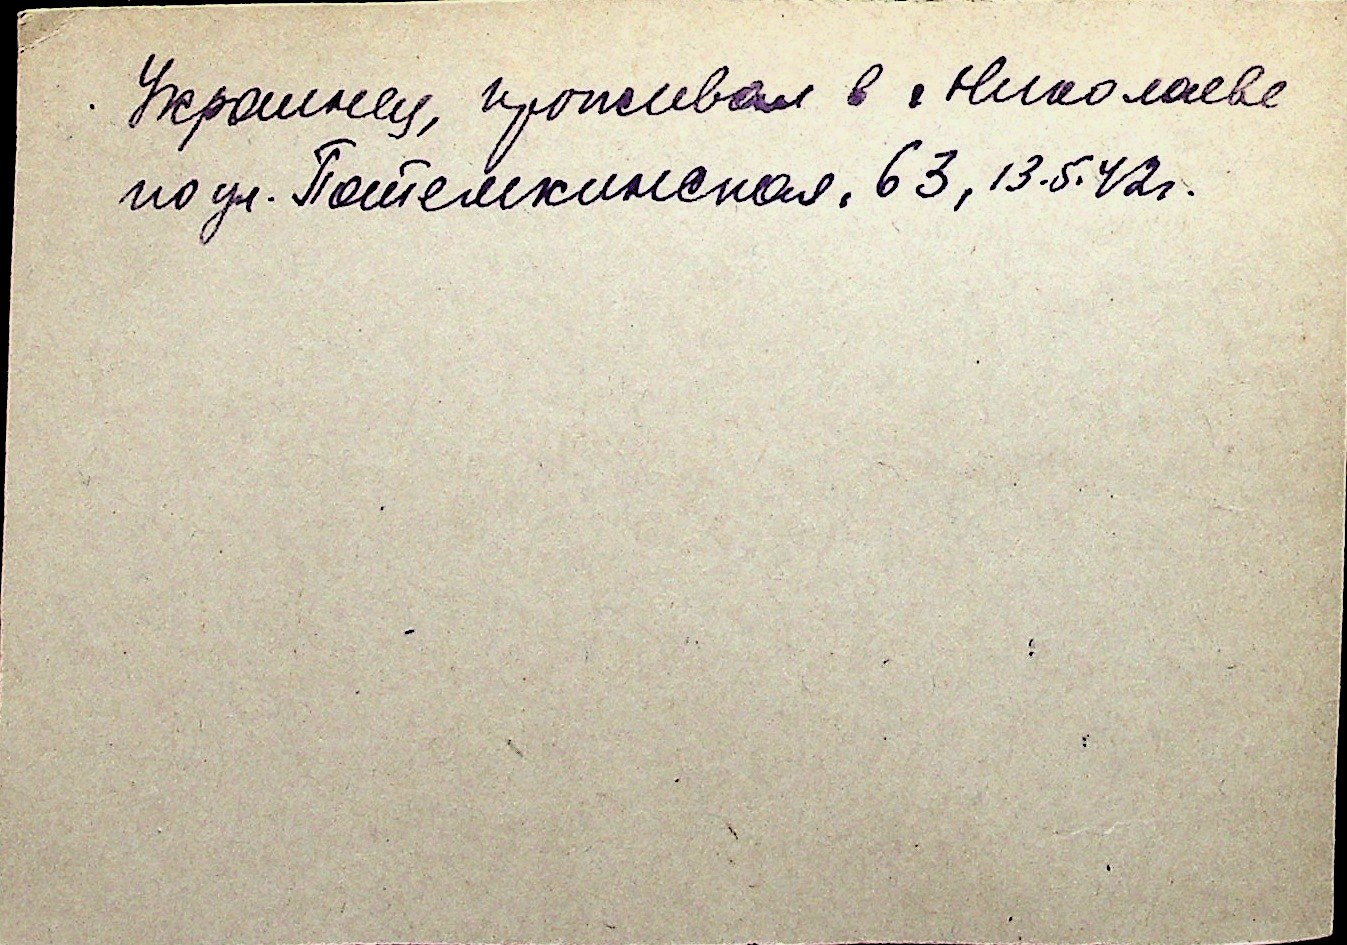 Украинец, проживал в г Николаеве
по ул. Потемкинская. 63, 13.5.42г.